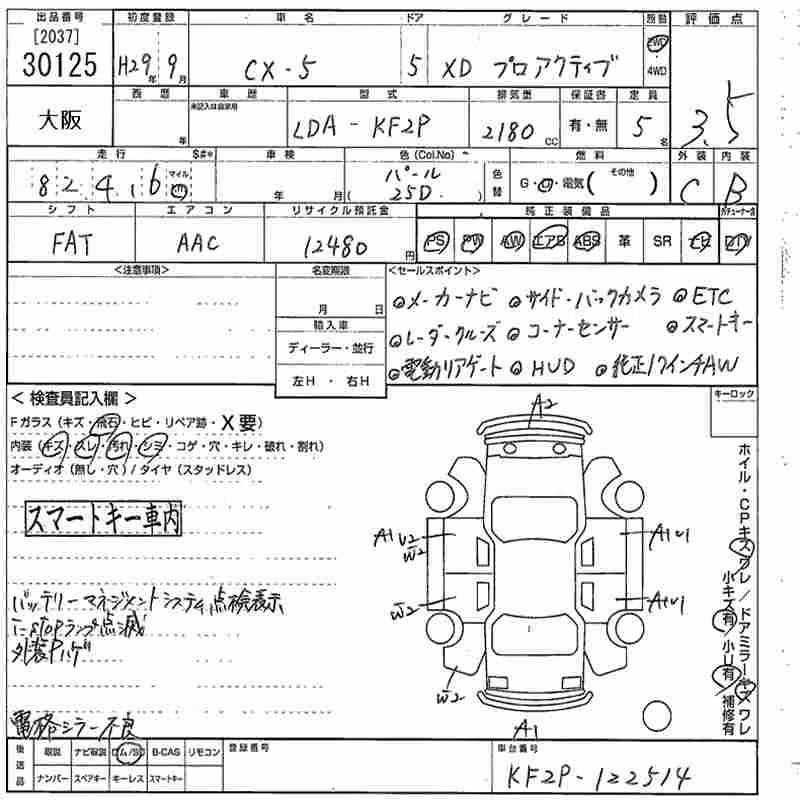 出品番号 初度登録 車名 ドア グレード 原動 評価点
[2037]
30125 H29年 9月 CX-5 5 XD プロアクティブ 2WD 4WD 3.5
大阪 西暦 年 車歴 未記入は自家用 型式 LDA-KF2P 排気量 2180cc 保証書 有・無 定員 5名
走行 $#* 車検 色(Col.No) 燃料 外装 内装
82,416 マイル km 年 月 パール (25D.) 色替 G・ ・電気( その他 ) C B
シフト エアコン リサイクル預託金 純正装備品
FAT AAC 12480円 PS PW AW エアB ABS 革 SR ナビ TV
<注意事項> 名変期限 <セールスポイント>
月 日
◎メーカーナビ ◎サイド・バックカメラ ◎ETC
輸入車
◎レーダークルーズ ◎コーナーセンサー ◎スマートキー
ディーラー・並行
◎電動リアゲート ◎HUD ◎純正17インチAW
左H・右H
<検査員記入欄> キーロック
Fガラス(キズ・飛石・ヒビ・リペア跡・X要)
内装(キズ・スレ・汚れ・シミ・コゲ・穴・キレ・破れ・割れ)
オーディオ(無し・穴)/タイヤ(スタッドレス)
スマートキー車内
バッテリーマネジメントシステム点検表示
i-STOPランプ点滅
外装Pハゲ
電格ミラー不良
A2
A1 U2
W2
A1U1
W2
A1U1
W2
A1
ホイル・CPキズワレ/ドアミラーキズワレ
小キズ有/小U有/補修有
後送品 取説 ナビ取説 ロム/SD B-CAS リモコン 登録番号 車台番号
ナンバー スペアキー キーレス スマートキー KF2P-122514